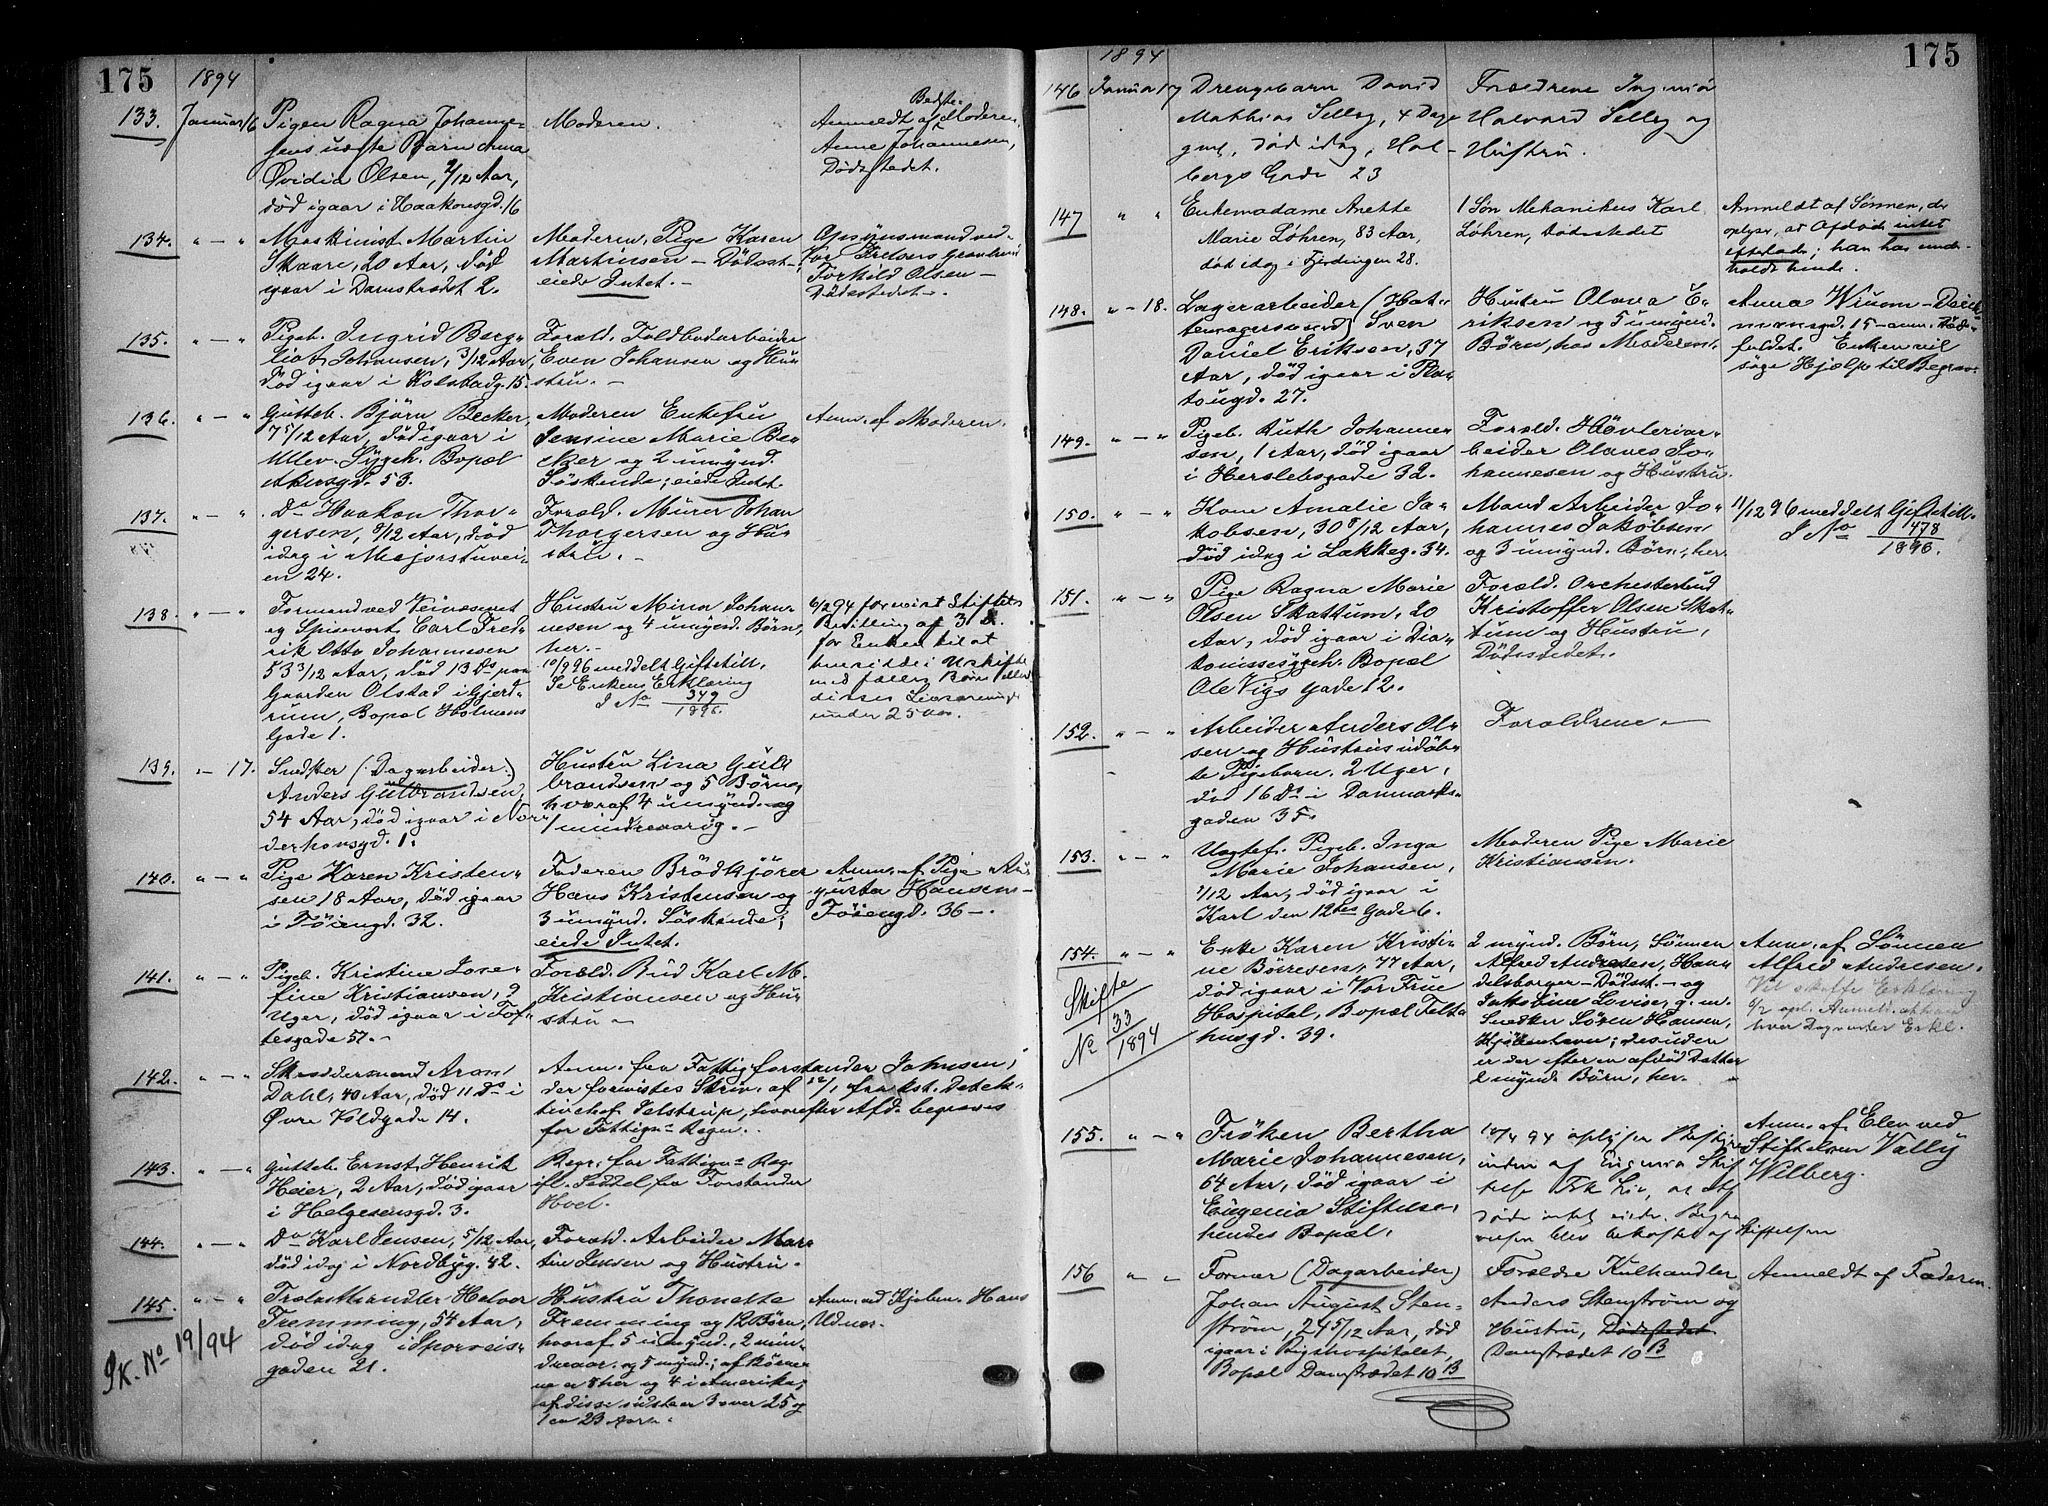 175
1894
133.
Januar 16
Pigen Ragna Johanne-
sens uægte Barn Anna
Ovidia Olsen, 2/12 Aar,
död igaar i Haakonsgd. 16
Moderen.
Bedste-
Anmeldt af Moderen,
Anne Johannesen,
Dödsstedet.
134.
" — "
Maskinist Martin
Skaare, 20 Aar, död
igaar i Damstrædet 2.
Moderen, Pige Karen
Martinsen — Dödsst.,
eiede Intet. —
Opsynsmand ved
Vor Frelsers Gravlund
Torkild Olsen —
Dödsstedet —.
135.
" — "
Pigeb. Ingrid Berg-
liot Johansen, 3/12 Aar,
död igaar i Kolstadg. 15.
Foræld. Toldbodarbeider
Even Johansen og Hu-
stru. —
136.
" — "
Gutteb. Björn Becker,
7 5/12 Aar, död igaar i
Ullev. Sygeh. Bopæl
Akersgd. 53.
Moderen Enkefru
Jensine Marie Be-
cker og 2 umynd.
Söskende; eiede Intet.
Anm. af Moderen.
137.
" — "
Do Haakon Thor-
gersen, 8/12 Aar, död
idag i Majorstuvei-
en 24.
Foræld. Murer Johan
Thorgersen og Hu-
stru. —
138.
" — "
Formand ved Veivæsenet
og Spisevert Carl Fred-
rik Otto Johannesen
53 3/12 Aar, död 13 Ds paa
Gaarden Olstad i Gjerd-
rum, Bopæl Holmens
Gade 1.
Hustru Mina Johan-
nesen og 4 umynd. Börn,
her. —
10/9 96 meddelt Giftetill.
Se Enkens Erklæring
J No 349/1896.
6/2 94 forevist Stiftets
Bevilling af 3 ds.
for Enken til at
hensidde i Uskifte
med fælles Börn
disses Livsarvinger
under 25 Aar.
139.
" — 17.
Snedker (Dagarbeider)
Anders Gulbrandsen,
54 Aar, död igaar i Nor-
derhovsgd. 1.
Hustru Lina Gul-
brandsen og 5 Börn,
hvoraf 4 umynd. og
1 mindreaarig. —
140.
" — "
Pige Karen Kristen-
sen 18 Aar, död igaar
i Töiengd. 32.
Faderen Brödkjörer
Hans Kristensen og
3 umynd. Söskende;
eiede Intet.
Anm. af Pige Au-
gusta Hansen —
Töiengd. 36 —.
141.
" — "
Pigeb. Kristine Jose-
fine Kristiansen, 9
Uger, död igaar i Tof-
tesgade 57. —
Foræld. Bud Karl M.
Kristiansen og Hu-
stru —
142.
" — "
Skræddersvend Aron
Dahl, 40 Aar, död 11 Ds i
Övre Voldgade 14.
Anm. fra Fattigforstander Johnsen,
der forevistes Skriv. af 12/1 fra kst. Detek-
tivchef Jelstrup, hvorefter Afd. begraves
for Fattigvs Regn. .
143.
" — "
Gutteb. Ernst Henrik
Heier, 2 Aar, död igaar
i Helgesensgd. 3.
Begr. for Fattigvs Reg.
ifl. Seddel fra Forstander
Hoel.
144.
" — "
Do Karl Jensen, 5/12 Aar,
död idag i Nordbyg. 42.
Foræld. Arbeider Mar-
tin Jensen og Hustru.
145.
" — "
Trælasthandler Halvor
Fremming, 54 Aar,
död idag i Sporveis-
gaden 21.
Hustru Thonette
Fremming og 12 Börn,
hvoraf 5 umynd., 2 min-
dreaar. og 5 mynd.; af Börne-
ne er 8 her og 4 i Amerika;
af disse sidste er 3 over 25 og
1 ca 23 Aar. —
Anm. ved Kjöbm. Hans
Udnæs.
Sk. No 19/94
175
1894
146
Januar 17
Drengebarn David
Mathias Selby, 4 Dage
gml, död idag, Hol-
bergs Gade 23
Forældrene Ingeniör
Halvard Selby og
Hustru.
147
" "
Enkemadame Anette
Marie Löhren, 83 Aar,
död idag i Fjerdingen 28.
1 Sön Mekanikus Karl
Löhren, Dödsstedet
Anmeldt af Sönnen, der
oplyser, at Afdöde intet
efterlader; han har under-
holdt hende.
148.
" — 18.
Lagerarbeider (Hat-
temagersvend) Sven
Daniel Eriksen, 37
Aar, död igaar i Ra-
tougd. 27.
Hustru Olava E-
riksen og 5 umynd.
Börn, hos Moderen.
Anna — Daich-
mansgd. 15 — anm. Döds-
faldet. Enken vil
söge Hjælp til Begrav.
149.
" — "
Pigeb. Ruth Johanne-
sen, 1 Aar, död igaar
i Herslebsgade 32.
Foræld. Hövleriar-
beider Olaves Jo-
hannesen og Hustru
150.
" — "
Kone Amalie Ja-
kobsen, 30 8/12 Aar,
död idag i Lakkeg. 34.
Mand Arbeider Jo-
hannes Jakobsen
og 3 umynd. Börn, her.
11/12 96 meddelt Giftetill.
J No 478/1896.
151.
" — "
Pige Ragna Marie
Olsen Skattum, 20
Aar, död igaar i Dia-
konissesygeh. Bopæl
Ole Vigs Gade 12.
Foræld. Orchesterbud
Kristoffer Olsen Skat-
tum og Hustru,
Dödsstedet.
152.
" — "
Arbeider Anders Ol-
sen og Hustrus udöb-
te Pigebarn. 2 Uger,
död 16 Ds i Danmarks-
gaden 35.
Forældrene. —
153.
" — "
Uægtef. Pigeb. Inga
Marie Johansen,
1/12 Aar, död igaar i
Karl den 12tes Gade 6.
Moderen Pige Marie
Kristiansen.
154.
" — "
Skifte
No 33/1894
Enke Karen Kristi-
ne Börresen, 77 Aar,
död igaar i Vor Frue
Hospital, Bopæl Telt-
husgd. 39.
2 mynd. Börn, Sönnen
Alfred Andresen, Han-
delsborger — Dödsst. — og
Jakobine Lovise, g. m.
Snedker Sören Hansen,
Kjöbenhavn; desuden
er der efter en afdöd Datter
2 mynd. Börn, her. —
Anm. af Sönnen
Alfred Andresen.
Vil skaffe Erklæring
6/2 opl. Anmeld. at han
hver Dag venter Erkl.
155.
" — "
Fröken Bertha
Marie Johannesen,
64 Aar, död igaar i
Eugenia Stiftelse,
hendes Bopæl.
10/4 94 oplyser Bestyrer-
inden af Eugenia Stif-
telse Frk Lie, at Af-
döde intet eiede. Begra-
velsen blev bekostet af Stiftelsen
Anm. af Elev ved
Stiftelsen Vally
Wilberg.
156
" "
Former (Dagarbeider)
Johan August Sten-
ström, 24 5/12 Aar, död
igaar i Rigshospitalet,
Bopæl Damstrædet 10 B
Forældre Kulhandler
Anders Stenström og
Hustru, Dödsstedet
Damstrædet 10 B
Anmeldt af Faderen.